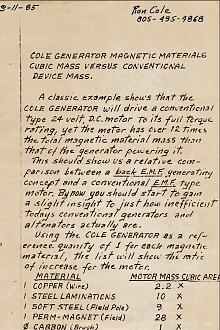 3-11-85
Ron Cole
805-495-4868
COLE GENERATOR MAGNETIC MATERIALS
CUBIC MASS VERSUS CONVENTIONAL
DEVICE MASS.
A classic example shows that the
COLE GENERATOR will drive a conventional
type 24 volt, D.C. motor to its full torque
rating, yet the motor has over 12 times
the total magnetic material mass than
that of the generator powering it.
This should show us a relative com-
parison between a back E.M.F. generating
concept and a conventional E.M.F. type
motor. By now you should start to gain
a slight insight to just how inefficient
todays conventional generators and
alternators actually are.
Using the COLE GENERATOR as a ref-
erence quanity of 1 for each magnetic
material, the list will show the ratio
of increase for the motor.
MATERIAL MOTOR MASS CUBIC AREA
1 COPPER (Wire) 2.2 X
1 STEEL LAMINATIONS 10 X
1 SOFT STEEL (Field Pole) 8 X
1 PERM-MAGNET (Field) 28 X
Ø CARBON (Brush) 1 X